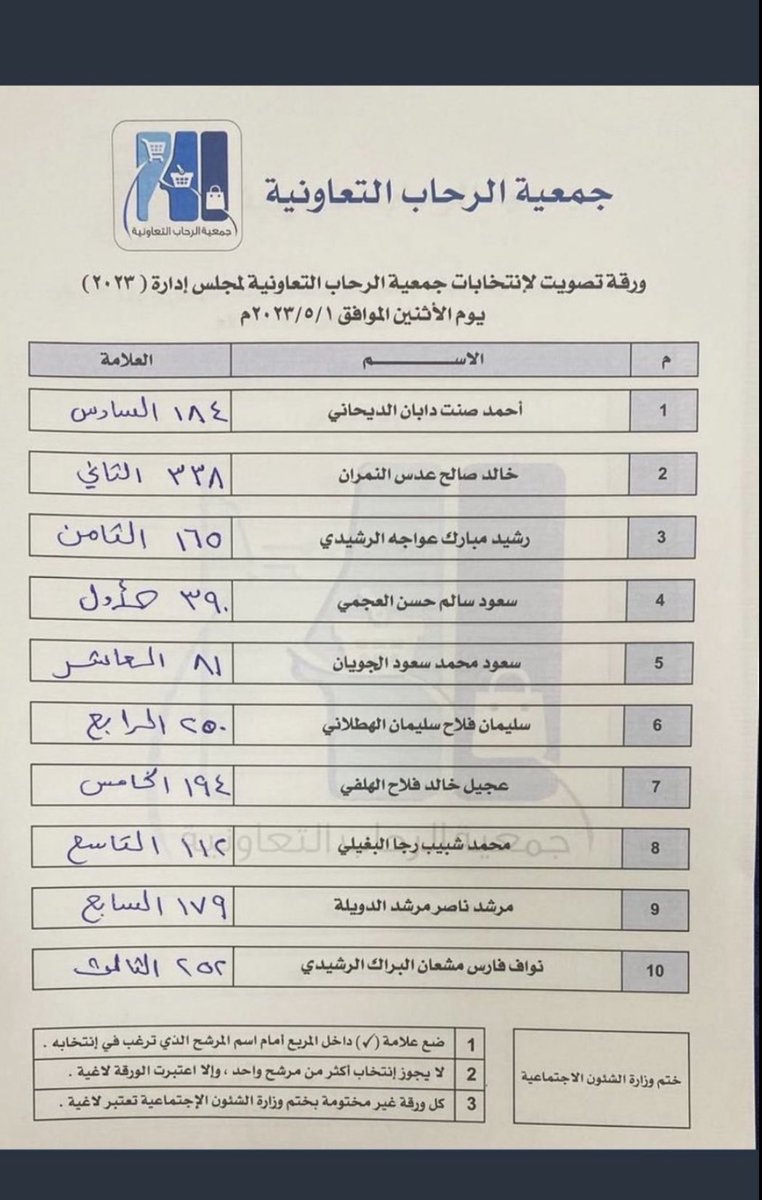 جمعية الرحاب التعاونية
جمعية الرحاب التعاونية
ورقة تصويت لإنتخابات جمعية الرحاب التعاونية لمجلس إدارة ( ٢٠٢٣ )
يوم الأثنين الموافق ٢٠٢٣/٥/١م
م الاســـــــــم العلامة
1 أحمد صنت دابان الديحاني ١٨٤ السادس
2 خالد صالح عدس النمران ٣٣٨ الثاني
3 رشيد مبارك عواجه الرشيدي ١٦٥ الثامن
4 سعود سالم حسن العجمي ٣٩٠ الأول
5 سعود محمد سعود الجويان ٨١ العاشر
6 سليمان فلاح سليمان الهطلاني ٢٥٠ الرابع
7 عجيل خالد فلاح الهلفي ١٩٤ الخامس
8 محمد شبيب رجا البغيلي ١١٢ التاسع
جمعية الرحاب التعاونية
9 مرشد ناصر مرشد الدويلة ١٧٩ السابع
10 نواف فارس مشعان البراك الرشيدي ٢٥٢ الثالث
1 ضع علامة (✓) داخل المربع أمام اسم المرشح الذي ترغب في إنتخابه .
2 لا يجوز إنتخاب أكثر من مرشح واحد ، وإلا اعتبرت الورقة لاغية .
3 كل ورقة غير مختومة بختم وزارة الشئون الإجتماعية تعتبر لاغية .
ختم وزارة الشئون الاجتماعية